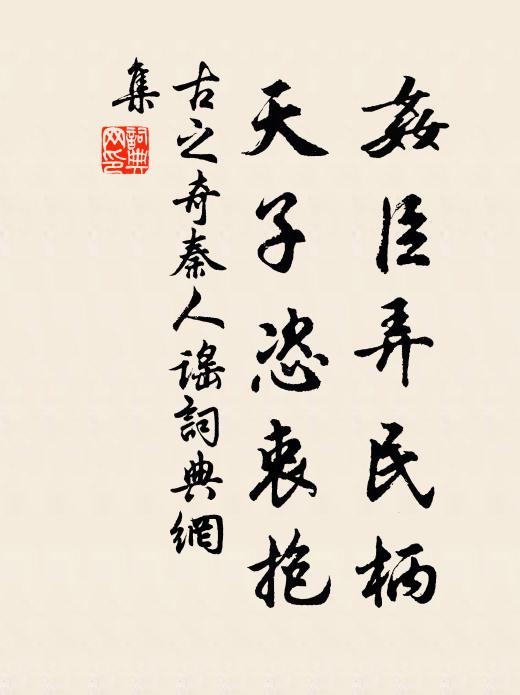 姦臣弄民柄
天子恣衷抱
古之奇秦人謠詞典網
集
詞典
网印